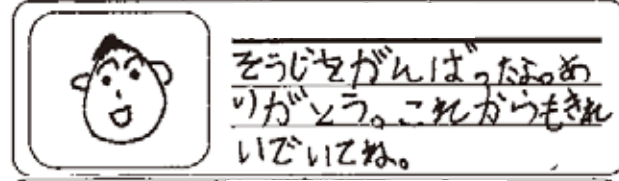 そうじをがんばったよ。あ
りがとう。これからもきれ
いでいてね。